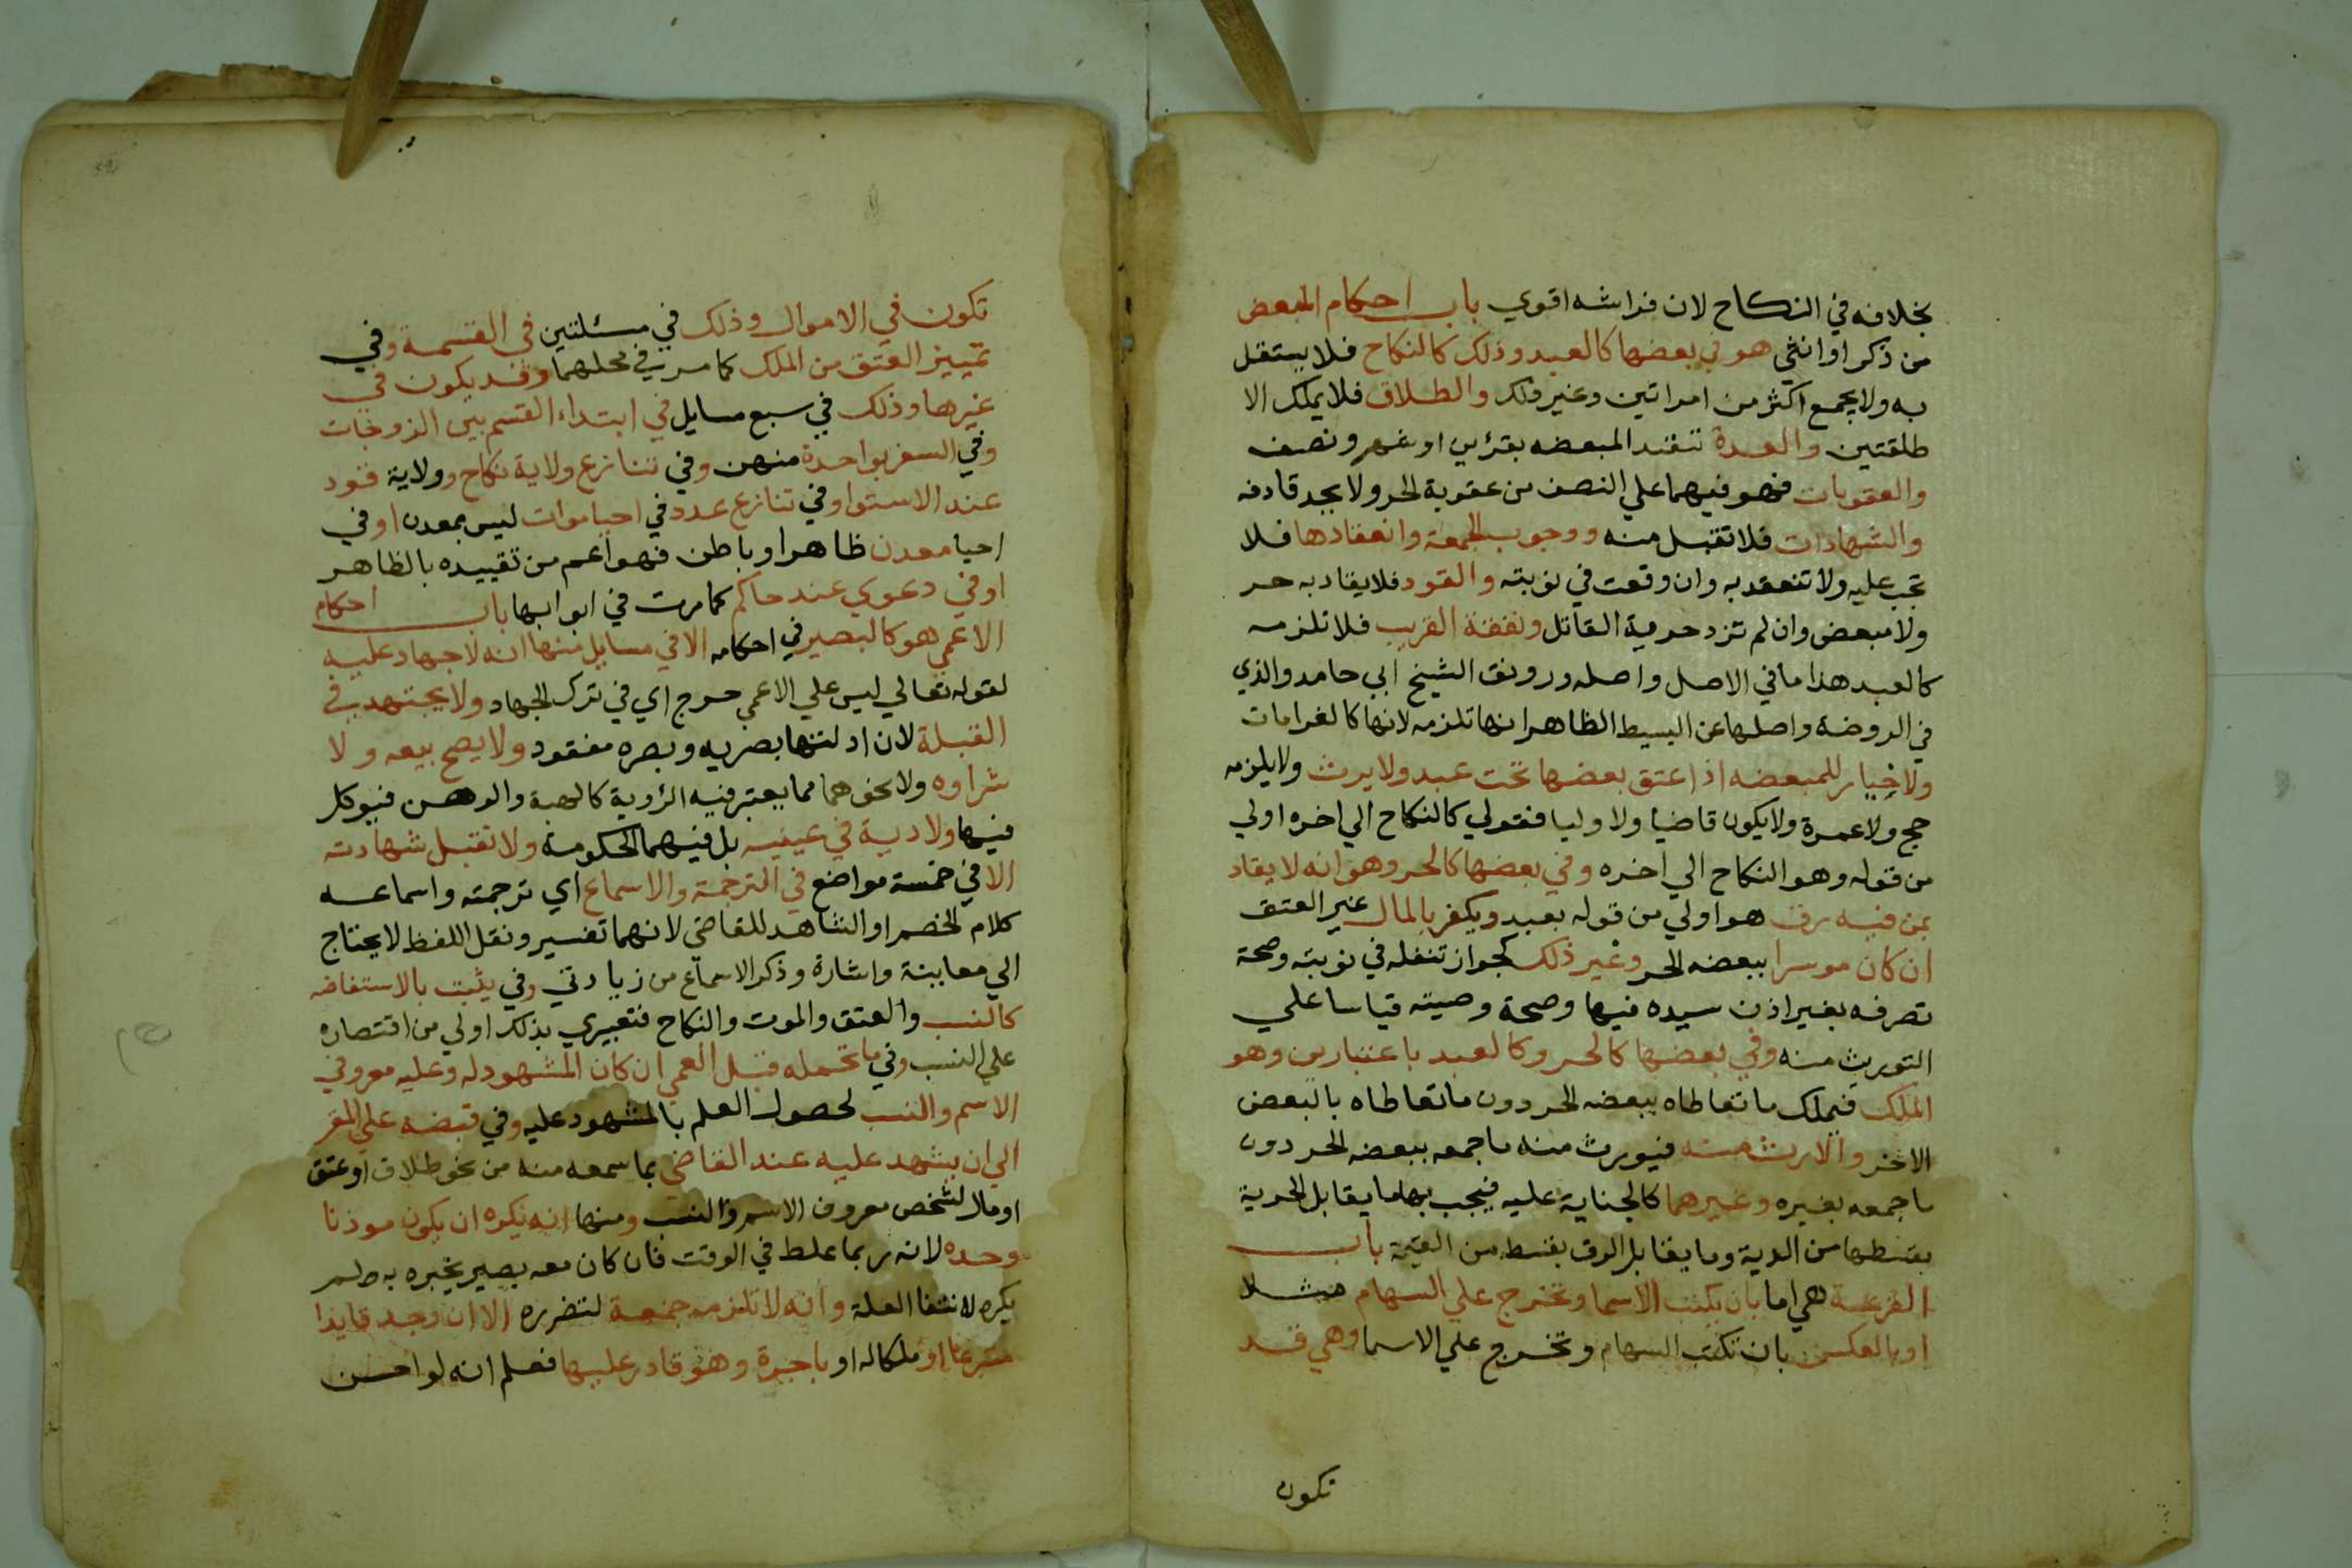 بخلافه في النكاح لان فراشه اقوي باب احكام المبعض
من ذكر او انثي هو في بعضها كالعبد وذلك كالنكاح فلا يستقل
به ولا يجمع اكثر من امراتين وغير ذلك والطلاق فلا يملك الا
طلقتين والعدة تعتد المبعضه بقرئين او شهر ونصف
والعقوبات فهو فيهما علي النصف من عقوبة الحر ولا يحد قاذفه
والشهادات فلا تقبل منه ووجوب الجمعة وانعقادها فلا
تجب عليه ولا تنعقد به وان وقعت في نوبته والقود فلا يقاد به حر
ولا مبعض وان لم تزد حرية القاتل ونفقة القريب فلا تلزمه
كالعبد هذا ما في الاصل واصله ورونق الشيخ ابي حامد والذي
في الروضة واصلها عن البسيط الظاهر انها تلزمه لانها كالغرامات
ولا خيار للمبعضه اذا عتق بعضها تحت عبد ولا يرث ولا يلزمه
حج ولا عمرة ولا يكون قاضيا ولا وليا فقولي كالنكاح الي اخره اولي
من قوله وهو النكاح الي اخره وفي بعضها كالحر وهو انه لا يقاد
بمن فيه رق هو اولي من قوله بعبد ويكفر بالمال غير العتق
ان كان موسرا ببعضه الحر وغير ذلك كجواز تنفله في نوبته وصحة
تصرفه بغير اذن سيده فيها وصحة وصيته قياسا علي
التوريث منه وفي بعضها كالحر وكالعبد باعتبارين وهو
الملك فيملك ما تعاطاه ببعضه الحر دون ما تعاطاه بالبعض
الاخر والارث منه فيورث منه ما جمعه ببعضه الحر دون
ما جمعه بغيره وغيرهما كالجناية عليه فيجب بها ما يقابل الحرية
بقسطها من الدية وما يقابل الرق بقسطه من القيمة باب
القرعة هي اما بان يكتب الاسما وتخرج علي السهام مثلا
او بالعكس بان تكتب السهام وتخرج علي الاسما وهي قد
تكون
تكون في الاموال وذلك في مسئلتين في القسمة وفي
تمييز العتق من الملك كما مر في محلهما وقد يكون في
غيرها وذلك في سبع مسايل في ابتداء القسم بين الزوجات
وفي السفر بواحدة منهن وفي تنازع ولاية نكاح وولاية قود
عند الاستوا وفي تنازع عدد في احيا موات ليس بمعدن او في
احيا معدن ظاهر او باطن فهو اعم من تقييده بالظاهر
او في دعوي عند حاكم كما مرت في ابوابها باب احكام
الاعمي هو كالبصير في احكامه الا في مسايل منها انه لا جهاد عليه
لقوله تعالي ليس علي الاعمي حرج اي في ترك الجهاد ولا يجتهد في
القبلة لان ادلتها بصريه وبصره مفقود ولا يصح بيعه ولا
شراوه ولا نحوهما مما يعتبر فيه الرؤية كالهبة والرهن فيوكل
فيها ولا دية في عينيه بل فيهما الحكومة ولا تقبل شهادته
الا في خمسة مواضع في الترجمة والاسماع اي ترجمته واسماعه
كلام الخصم او الشاهد للقاضي لانهما تفسير ونقل اللفظ لا يحتاج
الي معاينة واشارة وذكر الاسماع من زيادتي وفي يثبت بالاستفاضه
كالنسب والعتق والموت والنكاح فتعبيري بذلك اولي من اقتصاره
علي النسب وفي ما تحمله قبل العمي ان كان المشهود له وعليه معروفي
الاسم والنسب لحصول العلم بالمشهود عليه وفي قبضه علي المقر
الي ان يشهد عليه عند القاضي بما سمعه منه من نحو طلاق او عتق
او مال لشخص معروف الاسم والنسب ومنها انه يكره ان يكون موذنا
وحده لانه ربما غلط في الوقت فان كان معه بصير يخبره به لم
يكره لانتفا العلة وانه لا تلزمه جمعة لتضرره الا ان وجد قايدا
متبرعا او ملكا له او باجرة وهو قادر عليها فعلم انه لو احسن